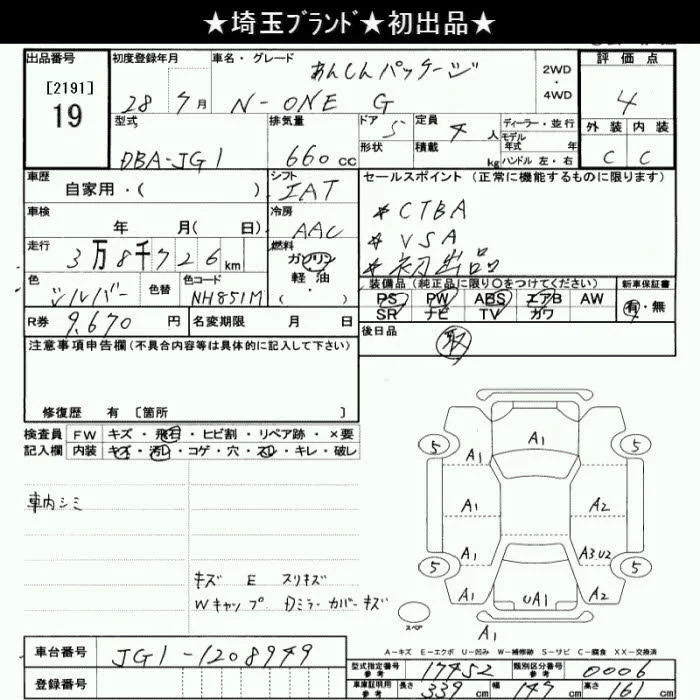 ★埼玉ﾌﾞﾗﾝﾄﾞ★初出品★
出品番号
[2191]
19
初度登録年月
28 年 7 月
車名・グレード
あんしんパッケージ
N-ONE G
2WD
・
4WD
評価点
4
外装 内装
C C
型式
DBA-JG1
排気量
660 cc
ドア 5
形状
定員 4 人
積載 kg
ディーラー・並行
モデル
年式 年
ハンドル 左・右
車歴
自家用・( )
シフト
IAT
車検
年 月( 日)
冷房
AAC
走行
3万8千726km
燃料
ガソリン
軽油
( )
色
シルバー
色替
色コード
NH851M
R券 9,670 円
名変期限 月 日
セールスポイント (正常に機能するものに限ります)
* CTBA
* VSA
* 初出品
装備品 (純正品に限り○をつけてください)
PS PW ABS エアB AW
SR ナビ TV カワ
新車保証書
有・無
後日品
取
注意事項申告欄 (不具合内容等は具体的に記入して下さい)
修復歴 有 〔箇所 〕
検査員 FW キズ・飛石・ヒビ割・リペア跡・×要
記入欄 内装 キズ・汚レ・コゲ・穴・スレ・キレ・破レ
車内シミ
キズ E スリキズ
Wキャップ Dミラーカバーキズ
A1
5 5
A1
A1 A2
A1 A3.U2
5 5
A1 UA1 A2
スペア
A1
A-キズ E-エクボ U-凹み W-補修跡 S-サビ C-腐食 XX-交換済
車台番号 JG1-1208949
登録番号
型式指定番号
参考
17452
類別区分番号
参考
0006
車庫証明用
参考
長さ 339 cm 幅 147 cm 高さ 161 cm